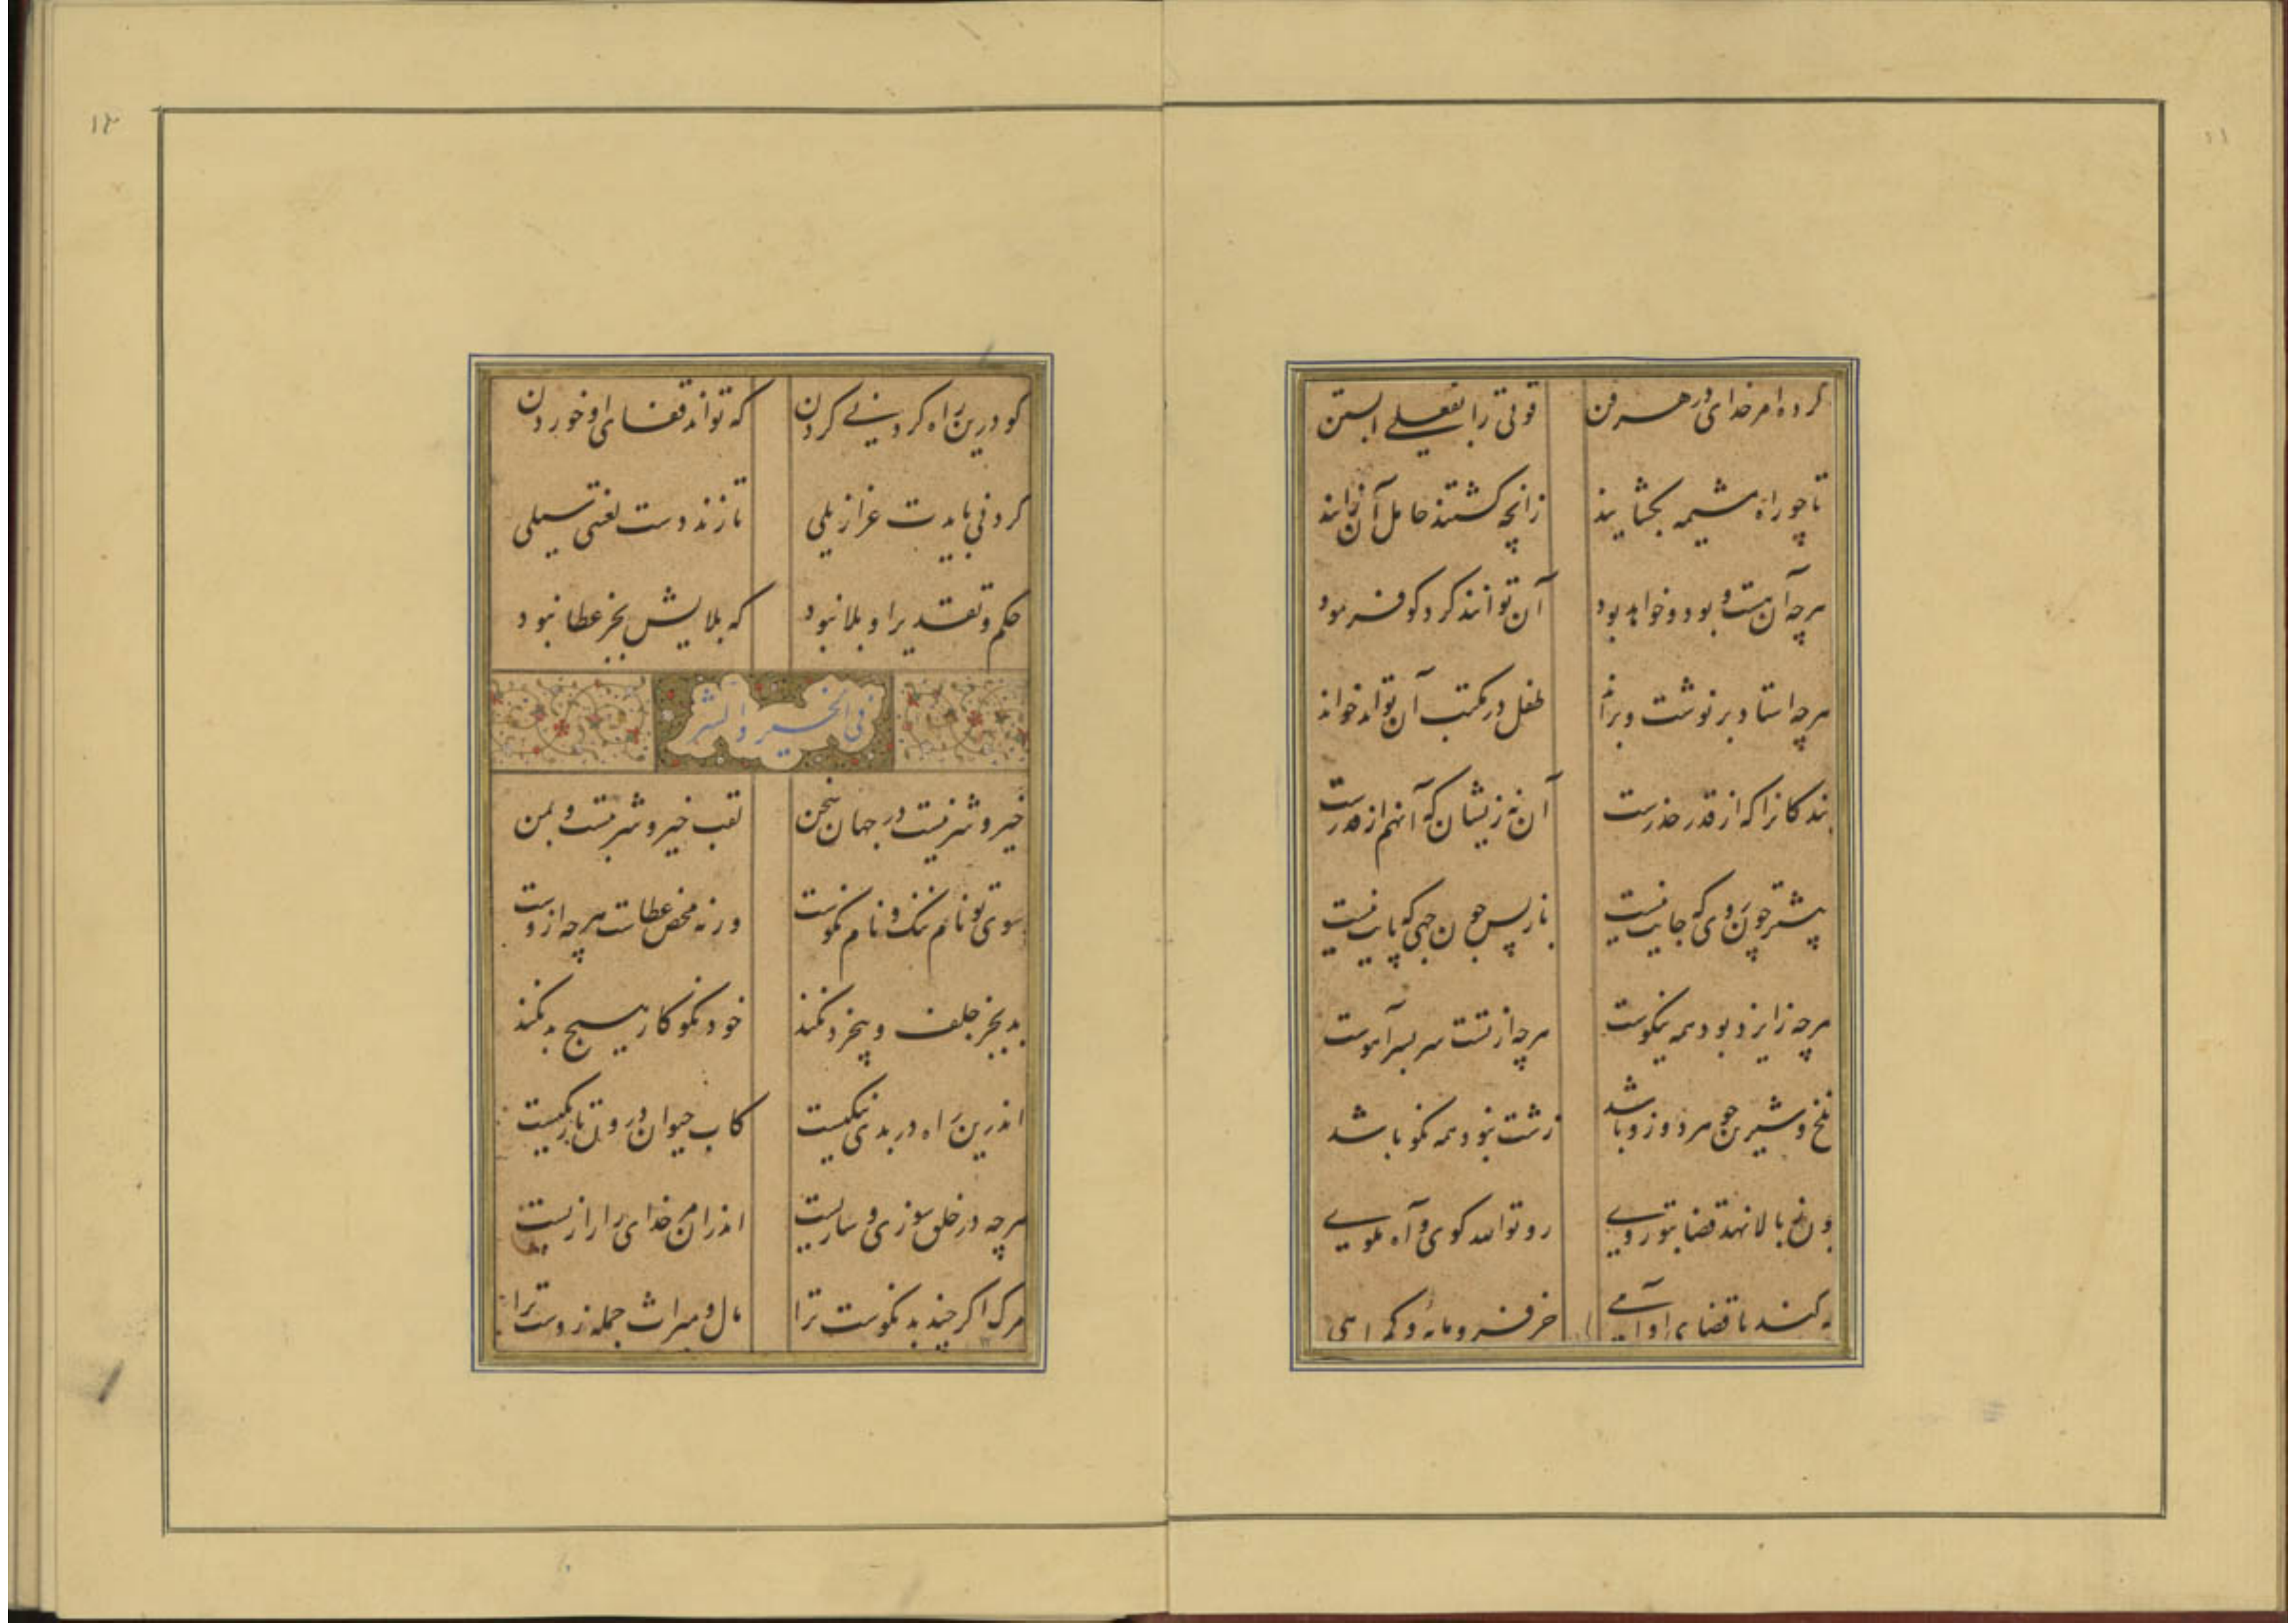 ۱۱
کرده امر خدای در هر فن
قوتی را بفعلی ابستن
تا چو راه مشیمه بگشایند
زانچه گشتند حامل آن زایند
هرچه آن هست و بود و خواهد بود
آن توانند کرد کو فرمود
هرچه استاد بر نوشت و براند
طفل در مکتب آن تواند خواند
بندکانرا که از قدر حذرست
آن نه زیشان که آنهم از قدرست
پیشتر چون روی که جایت نیست
باز پس چون جهی که پایت نیست
هرچه زایزد بود همه نیکوست
هرچه از تست سر بسر آهوست
تلخ و شیرین چون هر دو زو باشد
زشت نبود همه نکو باشد
چون نخ بالا نهد قضا بتو روی
رو تو الله کوی و آه مکوی
که کند با قضای او آهی
جز فرومایه و کمراهی
۱۲
کو درین راه کردنی کردن
که تواند قفای او خوردن
کردنی بایدت عزازیلی
تا زند دست لعنتی سیلی
حکم و تقدیر او بلا نبود
که بلایش بجز عطا نبود
فی الخیر والشر
خیر و شر نیست در جهان سخن
لقب خیر و شر بتست و بمن
سوی تو نام ننک و نام نکوست
ورنه محض عطاست هرچه ازوست
بد بجز جلف و بیخرد نکند
خود نکو کار هیچ بد نکند
اندرین راه در بدی نیکیست
کاب حیوان درون تاریکیست
هرچه در خلق سوزی و سازیست
اندران مر خدای را رازیست
مرک اکر چند بد نکوست ترا
مال و میراث جمله زوست ترا